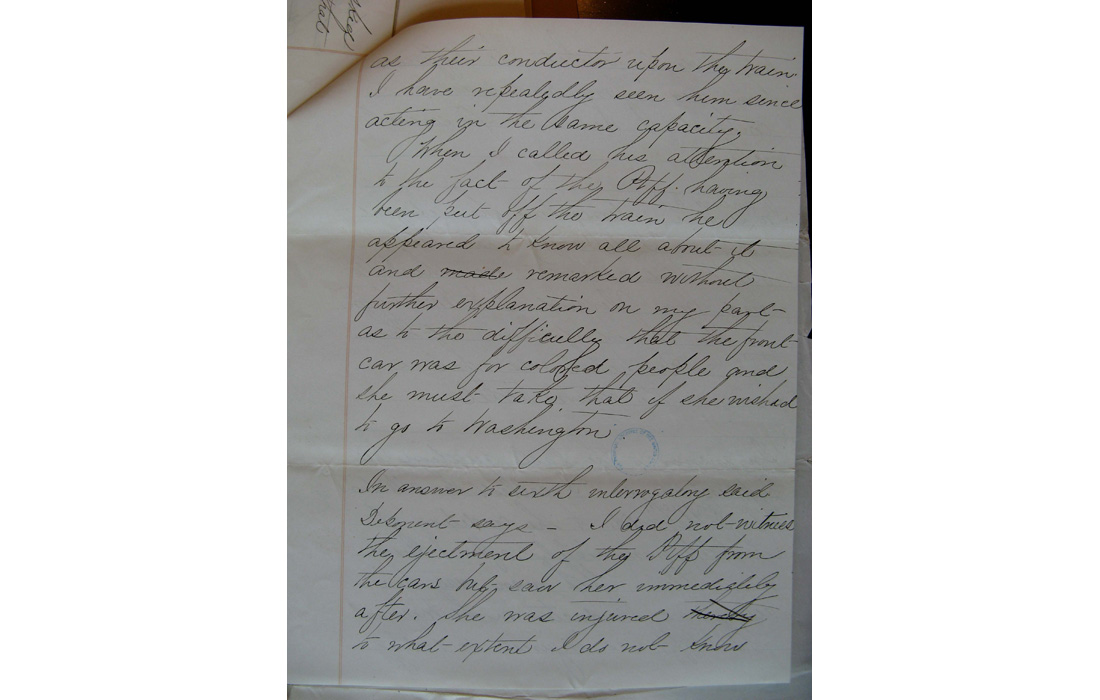 as their conductor upon the train.
I have repeatedly seen him since
acting in the same capacity.
When I called his attention
to the fact of the Ptff. having
been put off the train he
appeared to know all about it
and made remarked without
further explanation on my part
as to the difficulty that the front
car was for colored people and
she must take that if she wished
to go to Washington
In answer to sixth interrogatory said
Deponent says – I did not witness
the ejectment of the Ptff from
the cars but saw her immediately
after. She was injured thereby
to what extent I do not know